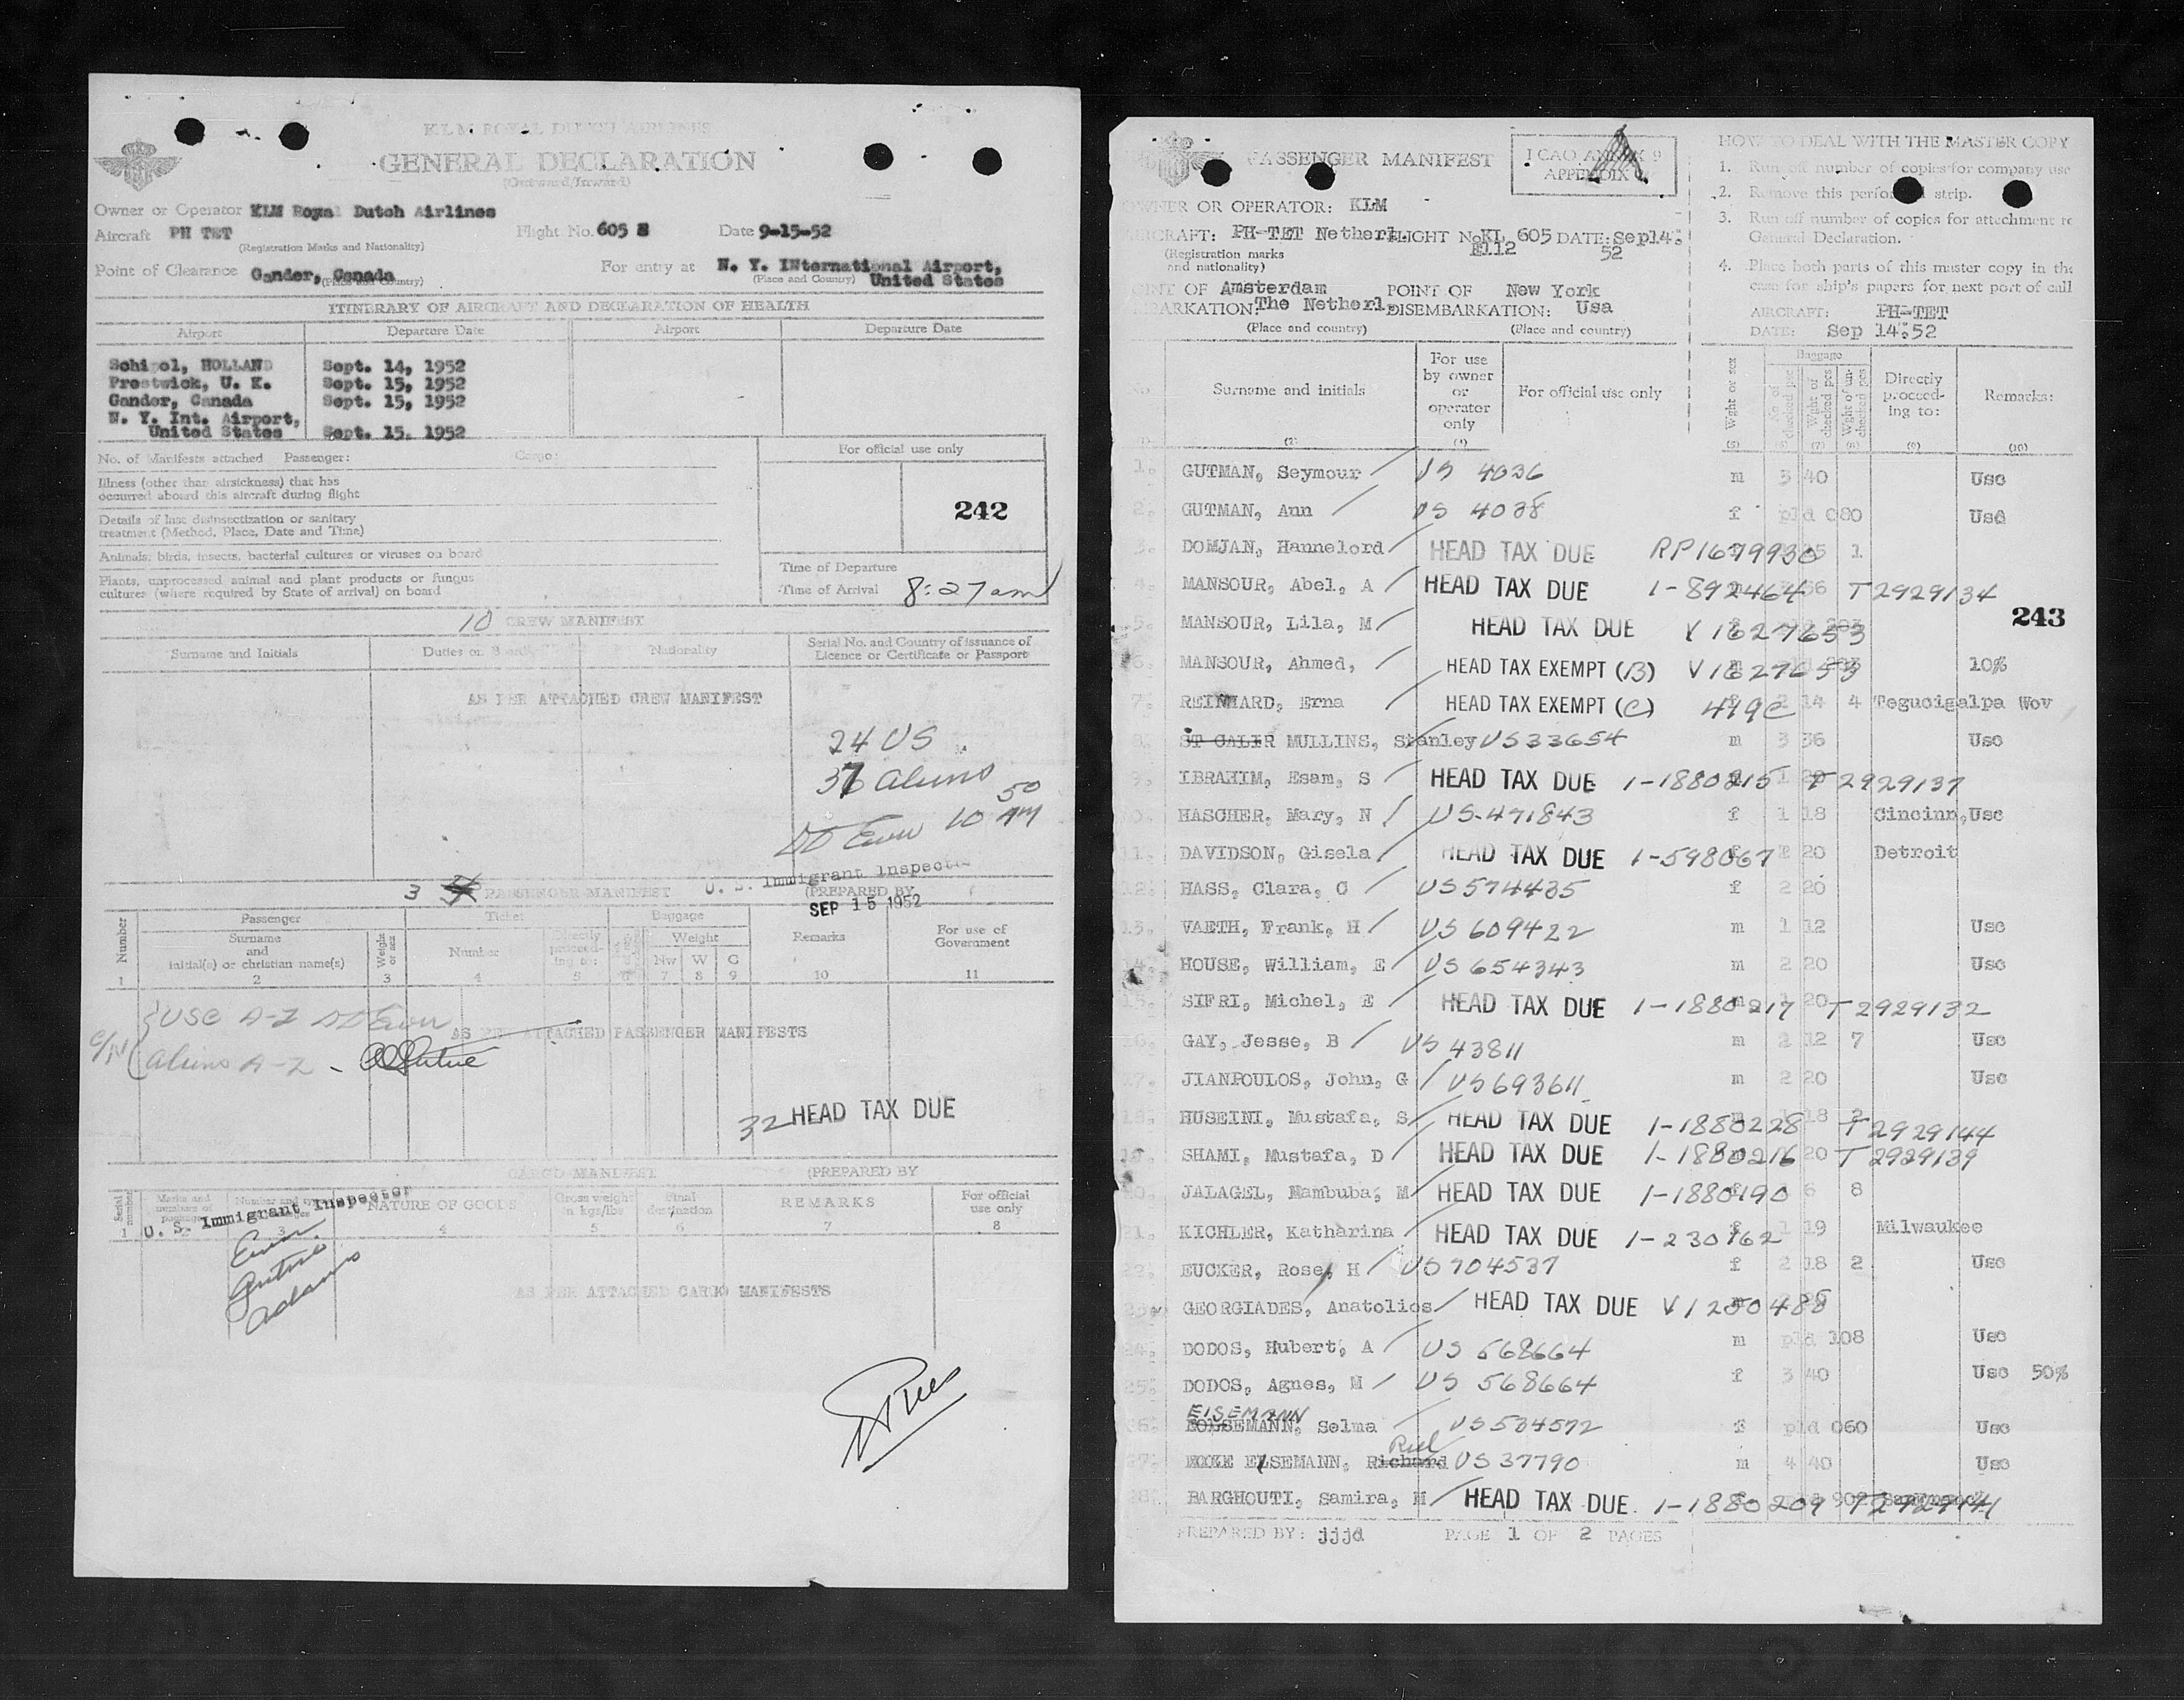 KLM ROYAL DUTCH AIRLINES
GENERAL DECLARATION
(Outward/Inward)
Owner or Operator KLM Royal Dutch Airlines
Aircraft PH TET Flight No. 605 Date 9-15-52
(Registration Marks and Nationality)
Point of Clearance Gander, Canada For entry at N. Y. INternational Airport,
(Place and Country) (Place and Country) United States
ITINERARY OF AIRCRAFT AND DECLARATION OF HEALTH
Airport Departure Date Airport Departure Date
Schipol, HOLLAND Sept. 14, 1952
Prestwick, U. K. Sept. 15, 1952
Gander, Canada Sept. 15, 1952
N. Y. Int. Airport,
United States Sept. 15. 1952
No. of Manifests attached Passenger: Cargo: For official use only
Illness (other than airsickness) that has
occurred aboard this aircraft during flight
242
Details of last disinsectization or sanitary
treatment (Method, Place, Date and Time)
Animals, birds, insects, bacterial cultures or viruses on board
Plants, unprocessed animal and plant products or fungus
cultures (where required by State of arrival) on board
Time of Departure
Time of Arrival 8:27 am
10 CREW MANIFEST
Surname and Initials Duties on Board Nationality Serial No. and Country of issuance of
Licence or Certificate or Passport
AS PER ATTACHED CREW MANIFEST
24 US
37 aliens
10 50 AM
U. S. Immigrant Inspector
3 PASSENGER MANIFEST (PREPARED BY
SEP 15 1952
Number Passenger Ticket Baggage Remarks For use of
Government
Surname
and
initial(s) or christian name(s)
Weight or sex Number Directly proceeding to: Weight
Nw W G
1 2 3 4 5 6 7 8 9 10 11
USC A-Z
AS PER ATTACHED PASSENGER MANIFESTS
aliens A-Z -
32 HEAD TAX DUE
CARGO MANIFEST (PREPARED BY
Serial number Marks and numbers of packages NATURE OF GOODS Gross weight in kgs/lbs Final destination REMARKS For official use only
1 2 3 4 5 6 7 8
U. S. Immigrant Inspector
Adams
AS PER ATTACHED CARGO MANIFESTS
PASSENGER MANIFEST
I CAO ANNEX 9
APPENDIX
OWNER OR OPERATOR: KLM
AIRCRAFT: PH-TET Netherl. FLIGHT No KL 605 DATE: Sep14.
(Registration marks
and nationality)
E112 52
POINT OF Amsterdam POINT OF New York
EMBARKATION: The Netherl. DISEMBARKATION: Usa
(Place and country) (Place and country)
HOW TO DEAL WITH THE MASTER COPY
1. Run off number of copies for company use
2. Remove this perforated strip.
3. Run off number of copies for attachment to
General Declaration.
4. Place both parts of this master copy in the
case for ship's papers for next port of call
AIRCRAFT: PH-TET
DATE: Sep 14.52
Surname and initials For use
by owner
or
operator
only For official use only
Wght or sex Baggage
No. of checked pcs Wght of checked pcs Wght of unchecked pcs Directly
proceed-
ing to: Remarks:
(1) (2) (4) (5) (6) (7) (8) (9) (10)
1. GUTMAN, Seymour US 4036 m 3 40 Usc
2. GUTMAN, Ann US 4038 f pld 080 Usc
3. DOMJAN, Hannelord HEAD TAX DUE RP1679930 1
4. MANSOUR, Abel, A HEAD TAX DUE 1-892464 56 T2929134
243
5. MANSOUR, Lila, M HEAD TAX DUE V1627653
6. MANSOUR, Ahmed, HEAD TAX EXEMPT (B) V1627653 10%
7. REINHARD, Erna HEAD TAX EXEMPT (C) 419C 2 14 4 Tegucigalpa Wov
8. ST CALER MULLINS, Stanley US33654 m 3 36 Usc
9. IBRAHIM, Esam, S HEAD TAX DUE 1-1880215 T2929137
10. HASCHER, Mary, N US-471843 f 1 18 Cincinn, Usc
11. DAVIDSON, Gisela HEAD TAX DUE 1-598067 20 Detroit
12. HASS, Clara, C US574435 f 2 20
13. VAETH, Frank, H US 609422 m 1 12 Usc
14. HOUSE, William, E US 654343 m 2 20 Usc
15. SIFRI, Michel, E HEAD TAX DUE 1-1880217 20 T2929132
16. GAY, Jesse, B US 43811 m 2 12 7 Usc
17. JIANPOULOS, John, G US693611 m 2 20 Usc
18. HUSEINI, Mustafa, S HEAD TAX DUE 1-1880228 18 2 T2929144
19. SHAMI, Mustafa, D HEAD TAX DUE 1-1880216 20 T2929139
20. JALAGEL, Mambuba, M HEAD TAX DUE 1-1880190 6 8
21. KICHLER, Katharina HEAD TAX DUE 1-230762 1 19 Milwaukee
22. EUCKER, Rose, H US704537 f 2 18 2 Usc
23. GEORGIADES, Anatolios HEAD TAX DUE V1250488
24. DODOS, Hubert, A US 568664 m pld 108 Usc
25. DODOS, Agnes, M US 568664 f 3 40 Usc 50%
EISEMANN
26. SEMANN, Selma US534572 f pld 060 Usc
27. EISEMANN, Richard US37790 m 4 40 Usc
28. BARGHOUTI, Samira, H HEAD TAX DUE 1-1880209
PREPARED BY: jjjd PAGE 1 OF 2 PAGES